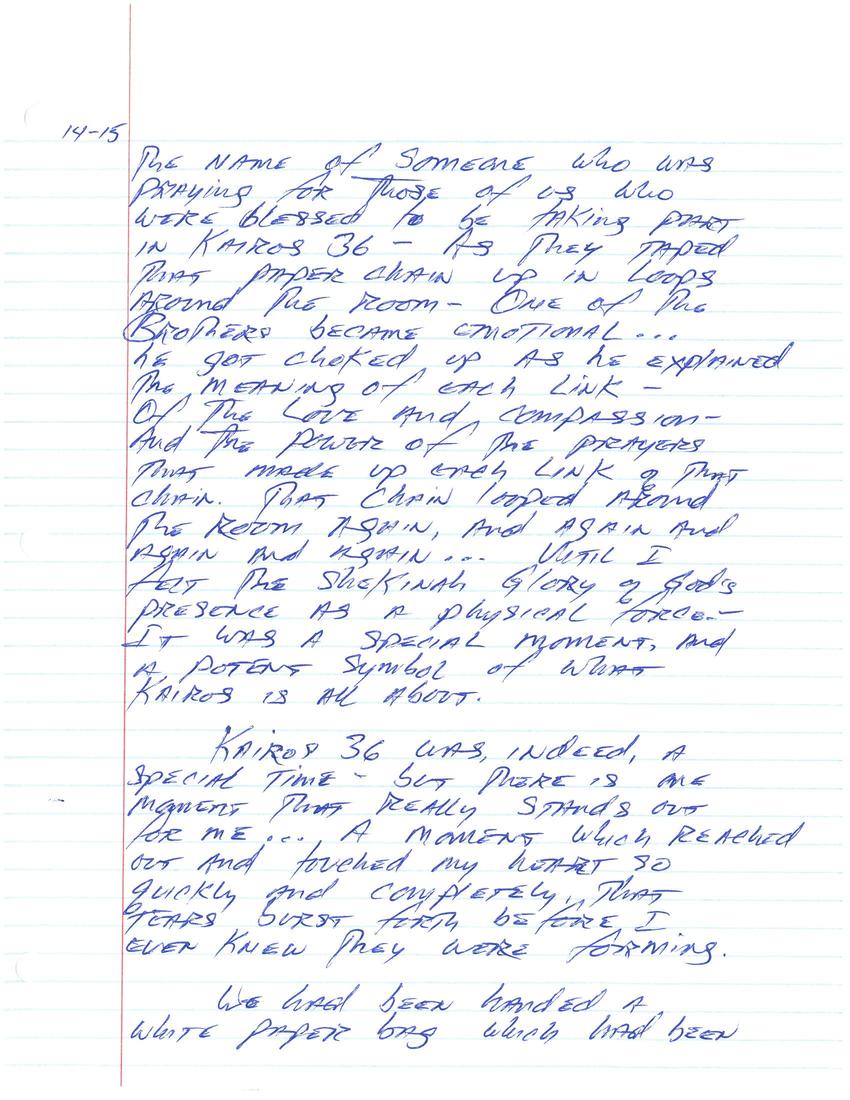 14-15
The name of someone who was
praying for those of us who
were blessed to be taking part
in Kairos 36 – As they taped
that paper chain up in loops
around the room – One of the
Brothers became emotional...
he got choked up as he explained
the meaning of each link –
Of the love and compassion –
And the power of the prayers
that made up each link of that
chain. That chain looped around
the room again, and again and
again and again... Until I
felt the Shekinah Glory of God's
presence as a physical force. –
It was a special moment, and
a potent symbol of what
Kairos is all about.
Kairos 36 was, indeed, a
special time – but there is one
moment that really stands out
for me... A moment which reached
out and touched my heart so
quickly and completely, that
tears burst forth before I
even knew they were forming.
We had been handed a
white paper bag which had been